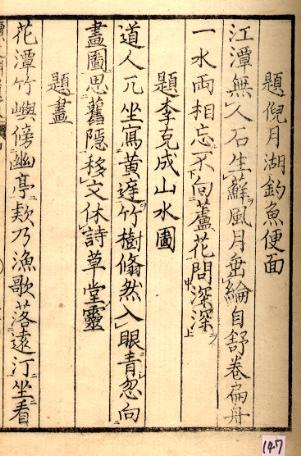 題倪月湖釣魚便面
江潭無人石生蘇風月垂綸自舒卷扁舟
一水両相忘不向蘆花問深深
題李克成山水圖
道人兀坐寫黃庭竹樹翛然入眼青忽向
畫圖思舊隠移文休詩草堂靈
題畫
花潭竹嶼傍幽亭欸乃漁歌落遠汀坐看
147